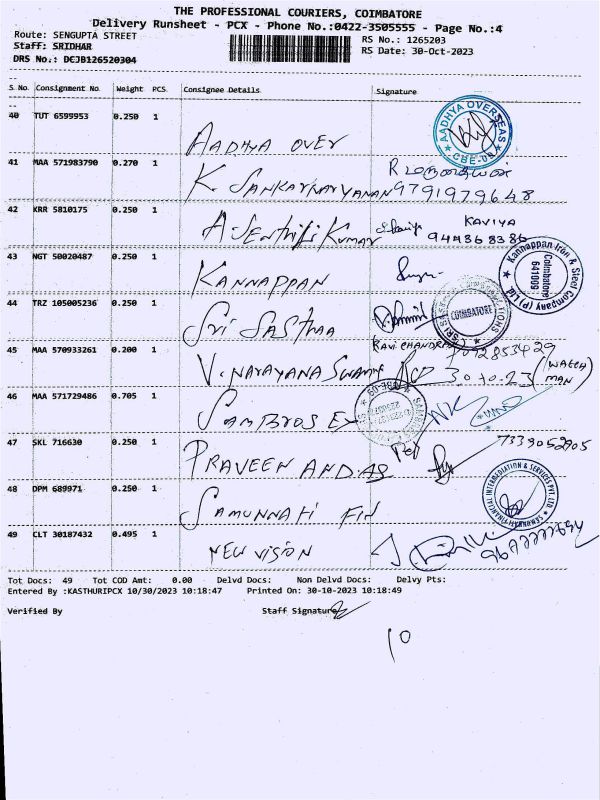 THE PROFESSIONAL COURIERS, COIMBATORE
Delivery Runsheet - PCX - Phone No.:0422-3505555 - Page No.:4
Route: SENGUPTA STREET
RS No.: 1265203
Staff: SRIDHAR
RS Date: 30-Oct-2023
DRS No.: DCJB126520304
S. No. Consignment No Weight PCS Consignee Details Signature
40 TUT 6599953 0.250 1 AADHYA OVER
AADHYA OVERSEAS CBE-09
41 MAA 571983790 0.270 1 K. SANKARNARYANAN 9791979648
42 KRR 5810175 0.250 1 A Senthil Kumar KAVIYA
43 NGT 50020487 0.250 1 KANNAPPAN
Kannappan Iron & Steel Company (P) Ltd. Coimbatore 641009
44 TRZ 105005236 0.250 1 Sri SASTHAA
COIMBATORE
45 MAA 570933261 0.200 1 V. NARAYANA SWAMY RAVI CHANDRAN
30-10-23 (WATCH MAN)
46 MAA 571729486 0.705 1 SAMBROS EX
47 SKL 716630 0.250 1 PRAVEEN AND AS 7339052905
48 DPM 689971 0.250 1 SAMUNNATI FIN
49 CLT 30187432 0.495 1 NEW VISION
Tot Docs: 49 Tot COD Amt: 0.00 Delvd Docs: Non Delvd Docs: Delvy Pts:
Entered By :KASTHURIPCX 10/30/2023 10:18:47 Printed On: 30-10-2023 10:18:49
Verified By Staff Signature
10